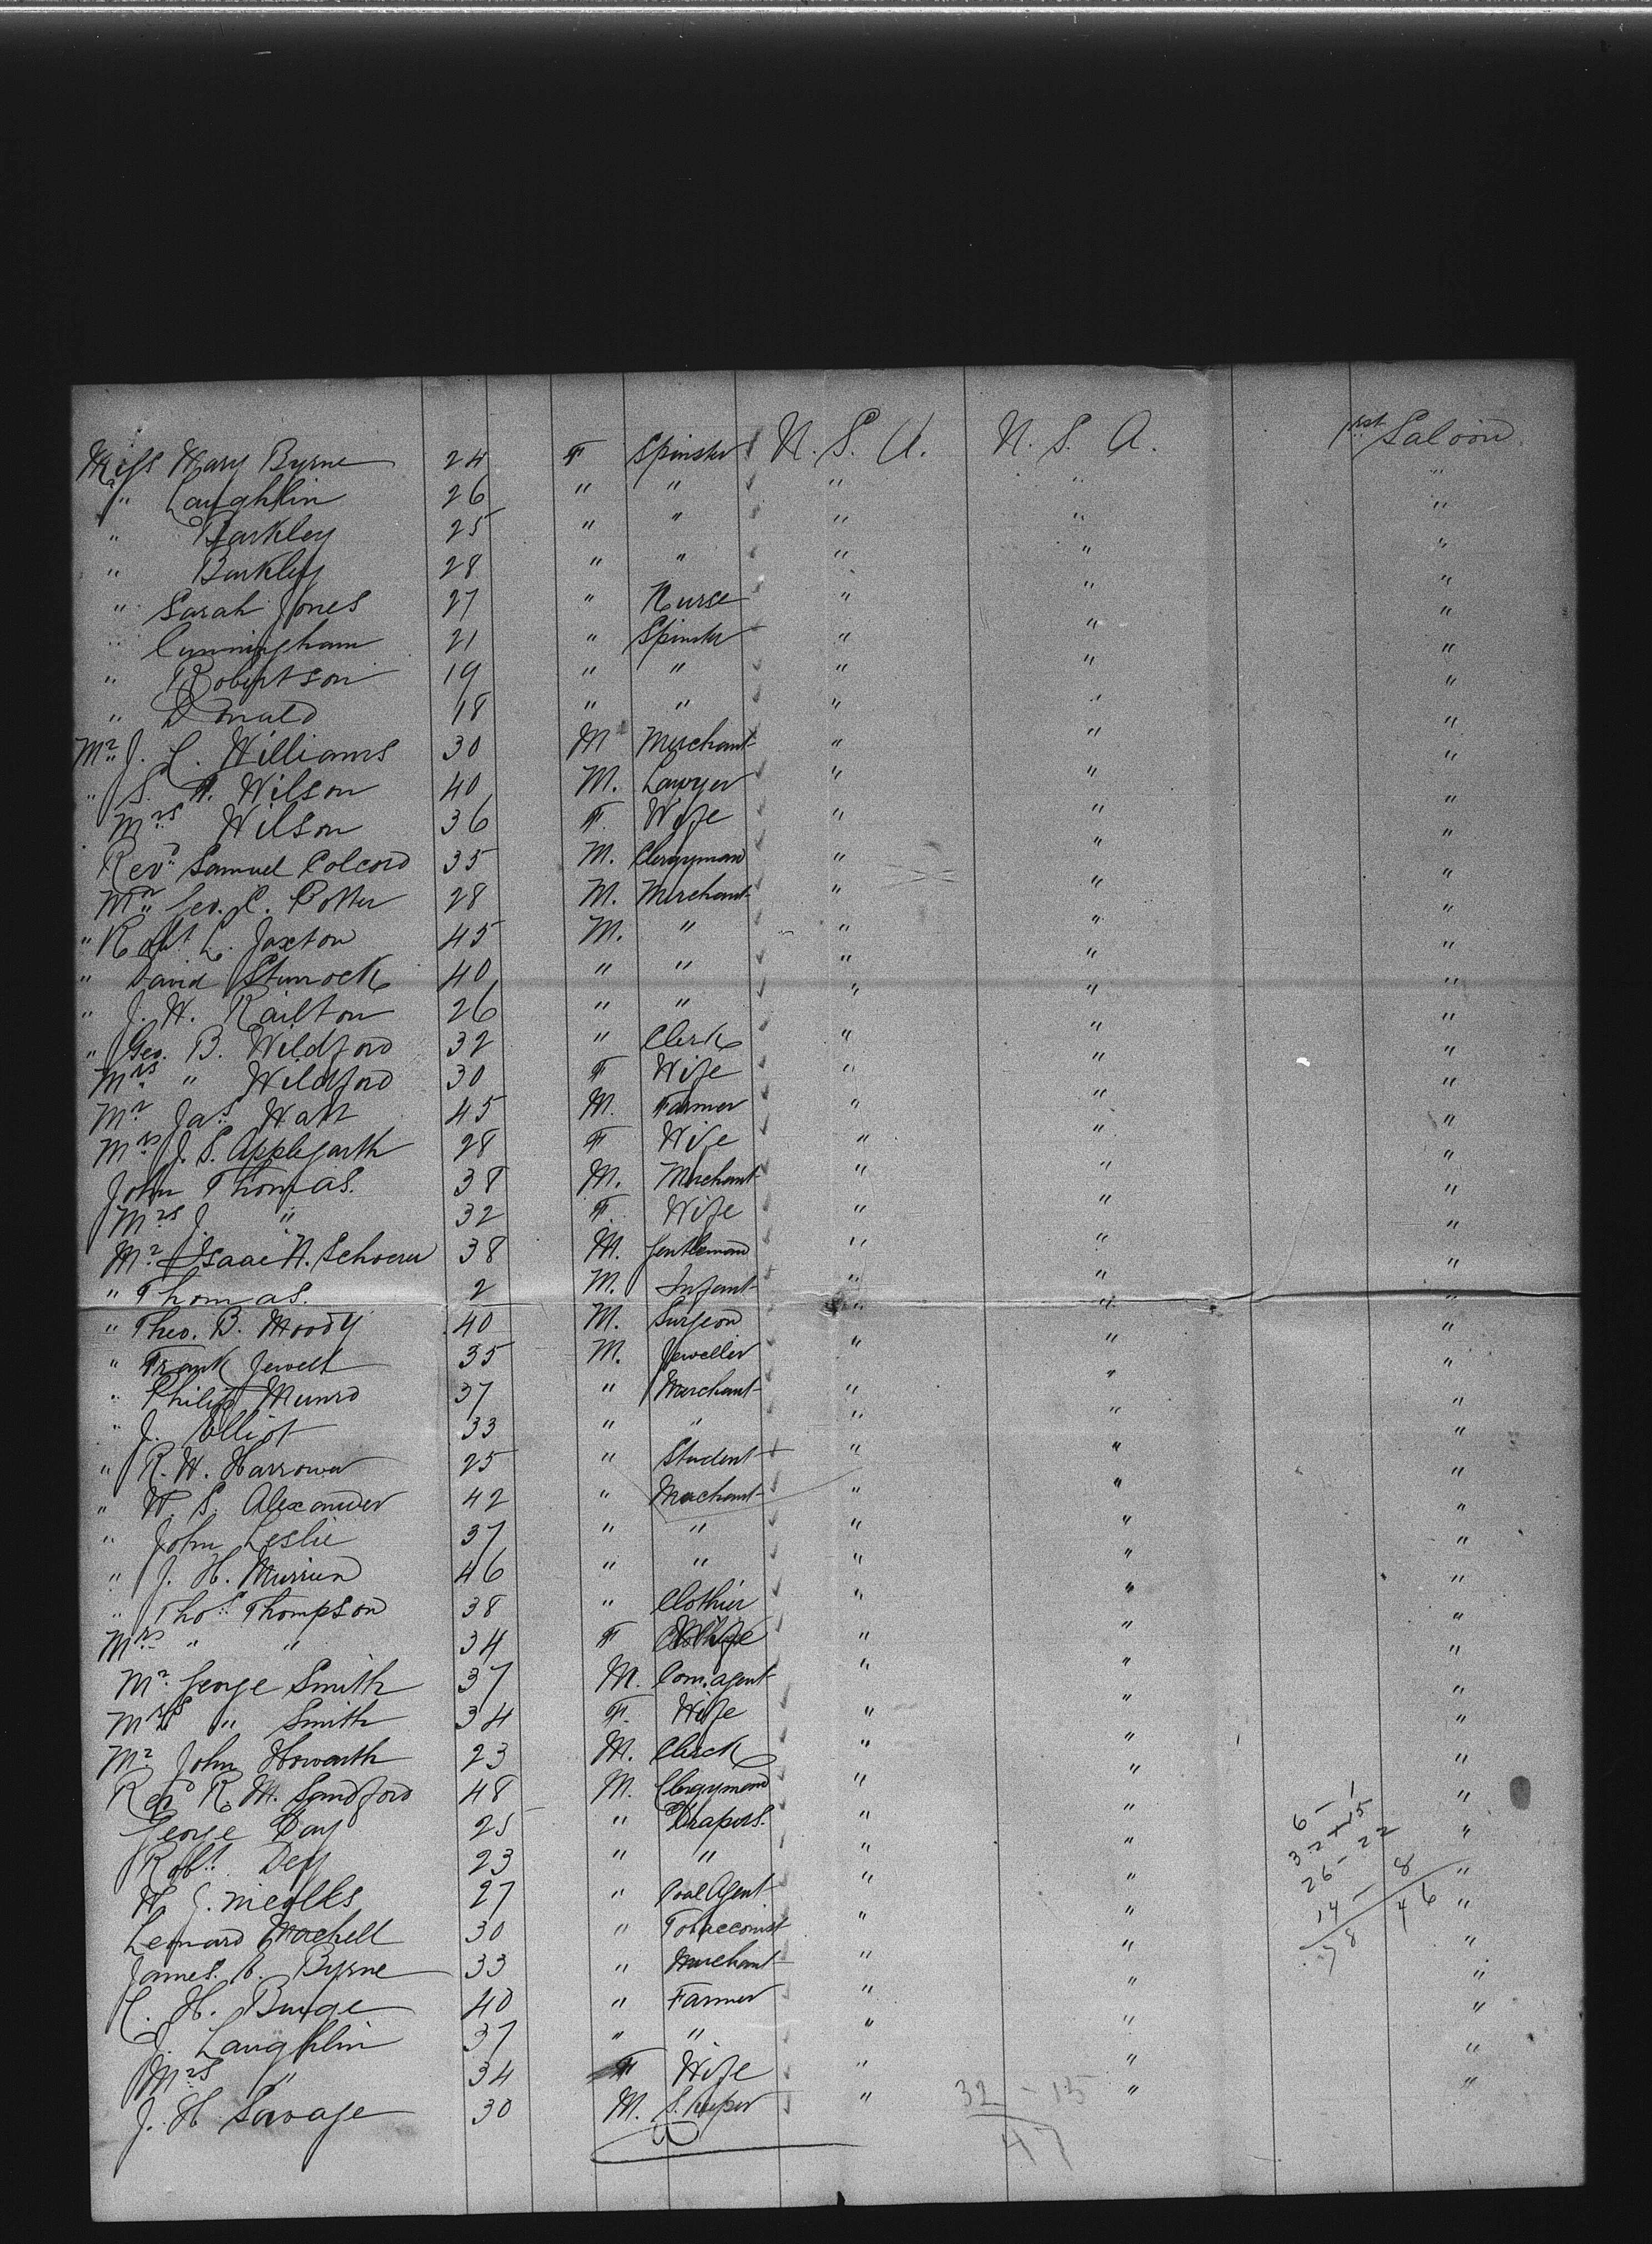 Miss Mary Byrne 24 F Spinster U. S. A. U. S. A. 1rst Saloon
" Laughlin 26 " " " " "
" Barkley 25 " " " " "
" Barkley 28 " " " " "
" Sarah Jones 27 " Nurse " " "
" Cunningham 21 " Spinster " " "
" Robertson 19 " " " " "
" Donald 18 " " " " "
Mr. J. L. Williams 30 M Merchant " " "
" S. Wilson 40 M. Lawyer " " "
Mrs Wilson 36 F. Wife " " "
Revd Samuel Colcord 35 M. Clergyman " " "
Mr. Geo. C. Potter 28 M. Merchant " " "
" Robt L. Jaxton 45 M. " " " "
" David Sturrock 40 " " " " "
" J. W. Railton 26 " " " " "
" Geo. B. Wildford 32 " Clerk " " "
Mrs " Wildford 30 F Wife " " "
Mr Jas Watt 45 M. Farmer " " "
Mrs J. S. Applegarth 28 F Wife " " "
John Thomas. 38 M. Merchant " " "
Mrs J. " 32 F. Wife " " "
Mr. Isaac N. 38 M. Gentleman " " "
" Thomas. 2 M. Infant " " "
" Theo. B. Moody 40 M. Surgeon " " "
" Frank Jewett 35 M. Jeweller " " "
" Philip Munro 37 " Merchant " " "
" J. Elliot 33 " " " " "
" R. W. Harrower 25 " Student " " "
" W. S. Alexander 42 " Merchant " " "
" John Leslie 37 " " " " "
" J. H. 46 " " " " "
" Thos Thompson 38 " Clothier " " "
Mrs " " 34 F Wife " " "
Mr. George Smith 37 M. Com. agent " " "
Mrs " Smith 34 F. Wife " " "
Mr John Howarth 23 M. Clerk " " "
Revd R. M. Sandford 48 M. Clergyman " " "
George Day 25 " Drapers. " " "
Robt. Dey 23 " " " " "
W. J. Nicolls 27 " Coal Agent " " "
Leonard Machell 30 " Tobacconist " " "
James. A. Byrne 33 " Merchant " " "
C. H. Burge 40 " Farmer " " "
J. Laughlin 37 " " " " "
Mrs " 34 F Wife " " "
J. H Savage 30 M. S. keeper " "
6 - 1
32 + 15
26 - 22
14 - 8
78 46
32 - 15
47